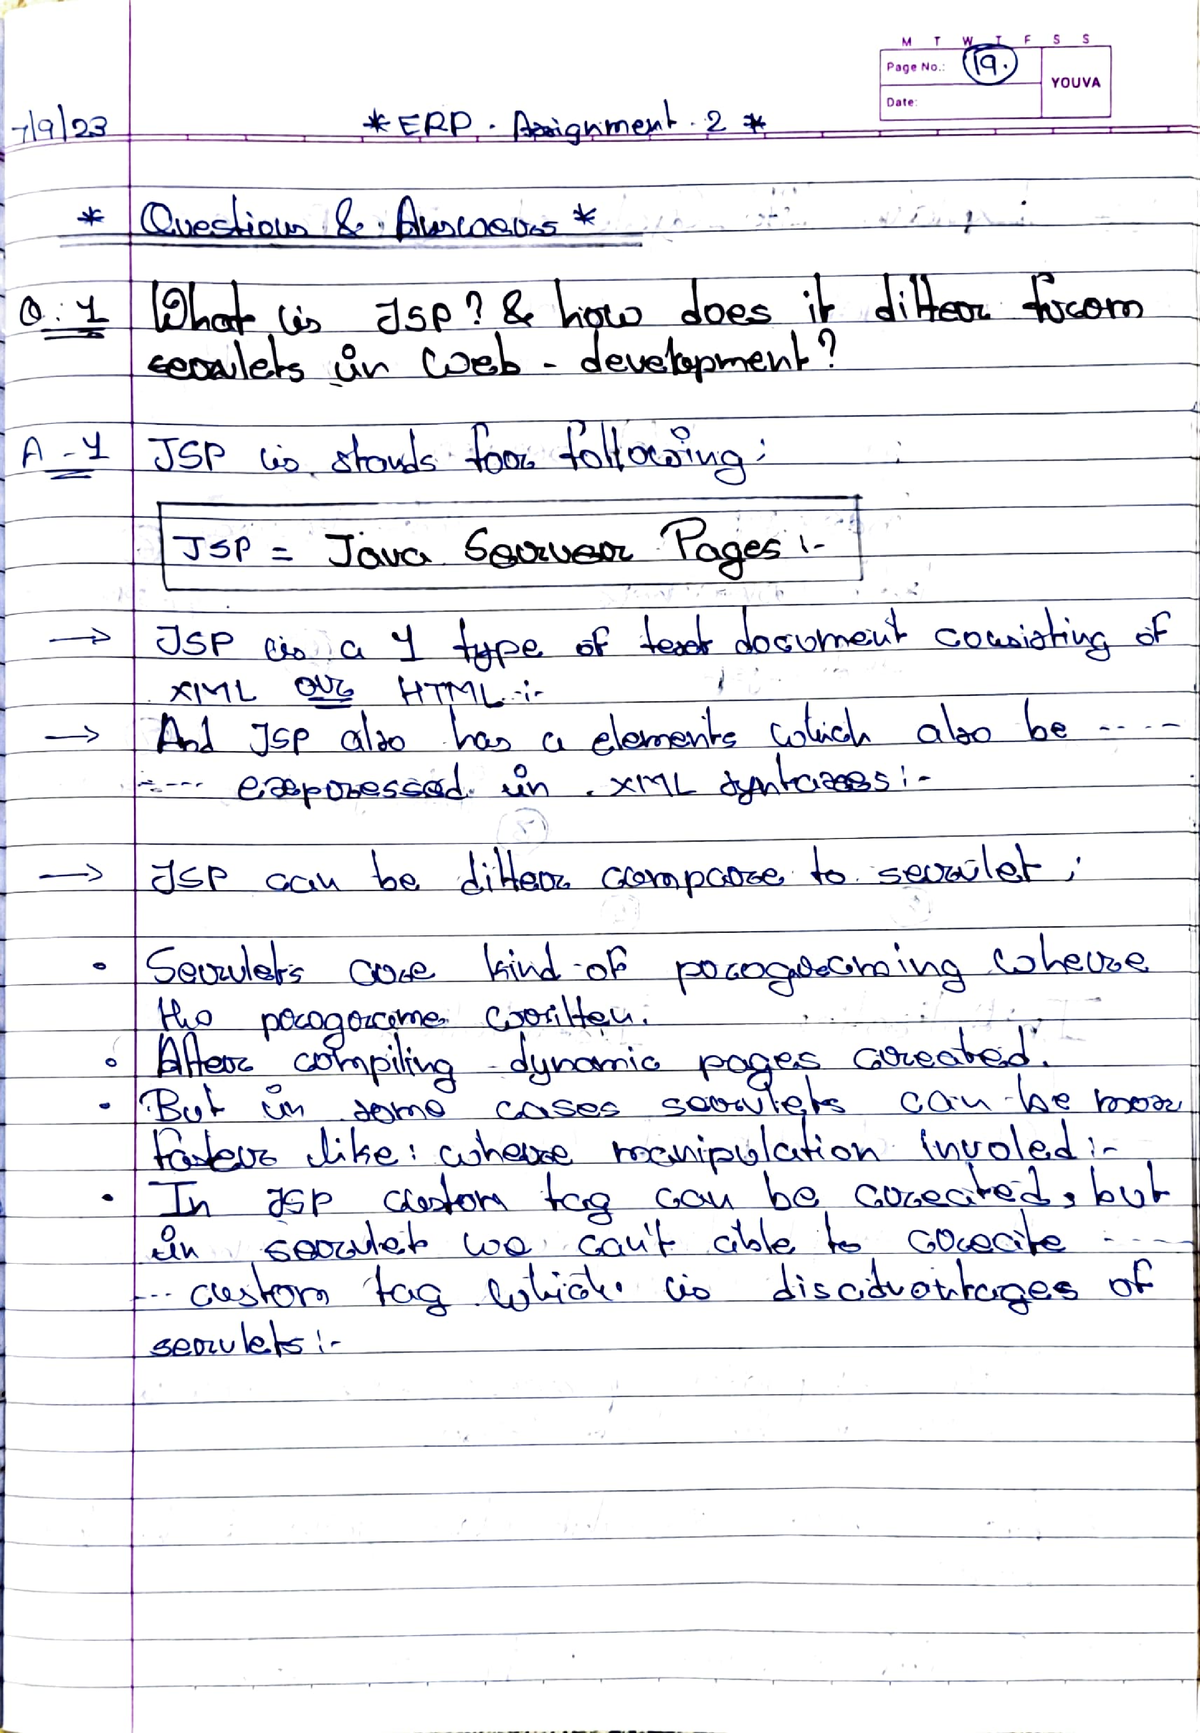 M T W T F S S
Page No.: 19.
YOUVA
Date:
7/9/23 * ERP. Assignment. 2 *
* Questions & Answers *
Q. 1 What is JSP? & how does it differ from
servlets in web - development?
A - 1 JSP is stands for following:
JSP = Java Server Pages :-
→ JSP is a 1 type of text document consisting of
XML or HTML :-
→ And JSP also has a elements which also be ----
---- expressed in XML syntaxes :-
→ JSP can be differ compare to servlet ;
• Servlets are kind of programing where
the programe written.
• After compiling dynamic pages created.
• But in some cases servlets can be mor
faster like: where manipulation involed :-
• In JSP custom tag can be created, but
in servlet we can't able to create ----
--- custom tag which is disadvantages of
servlets :-